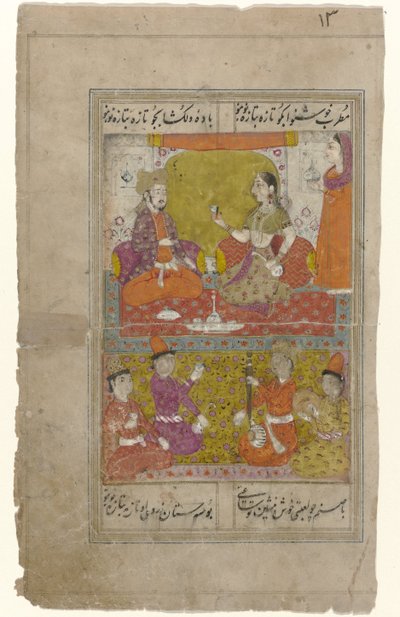 ١٣
مطرب خوشنوا بکو تازه بتازه نوبنو
باده دلکشا بجو تازه بتازه نوبنو
با صنم چو لعبتی خوش بنشین
بوسه ستان ز روی او تازه بتازه نوبنو